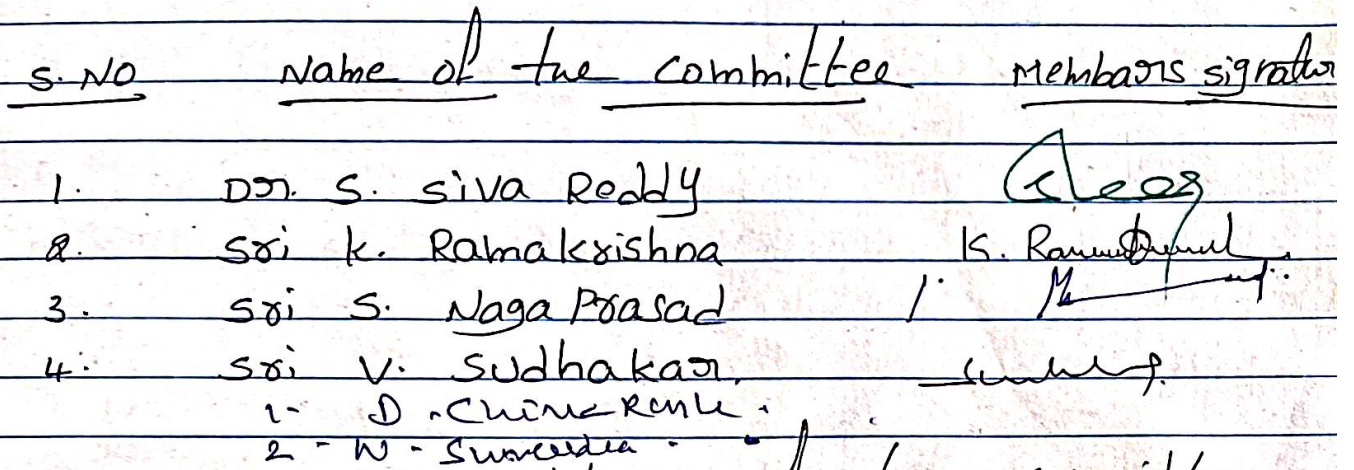 S. NO Name of the Committee Membars signatur
1. Dr. S. Siva Reddy
2. Sri K. Ramakrishna K.
3. Sri S. Naga Prasad
4. Sri V. Sudhakar.
1- D.
2- N-